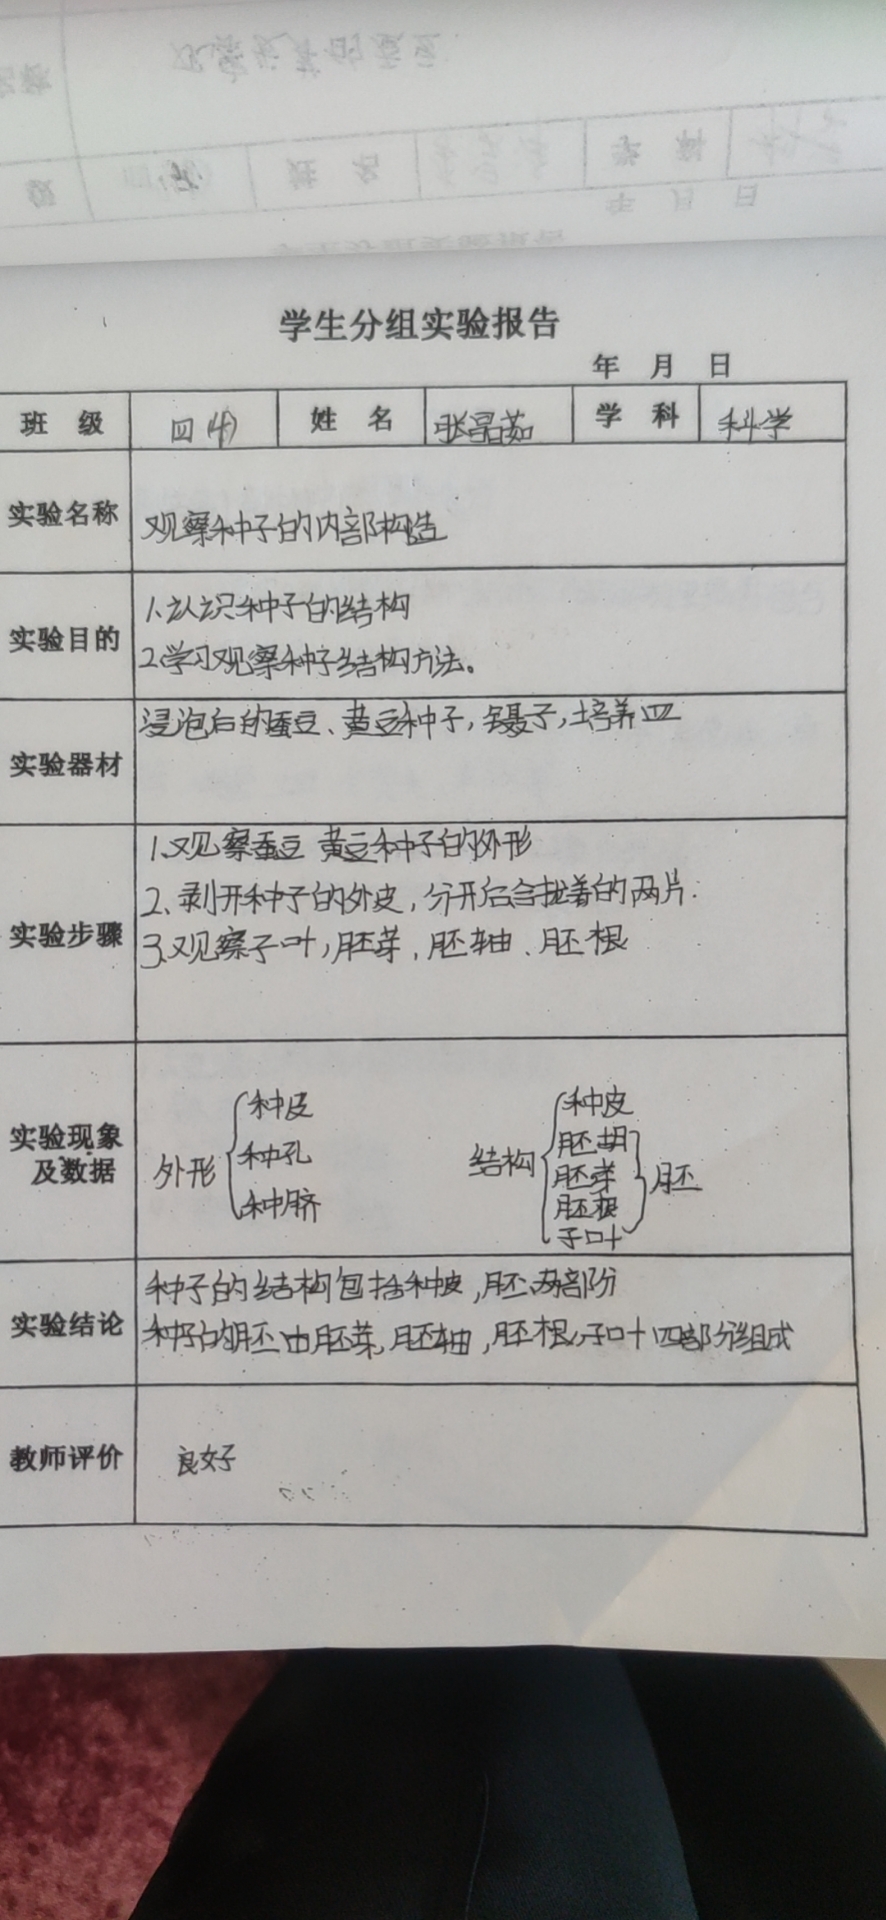 学生分组实验报告
年 月 日
班 级 四(4) 姓 名 张茹 学 科 科学
实验名称 观察种子的内部构造
实验目的 1.认识种子的结构
2.学习观察种子结构方法。
实验器材 浸泡后的蚕豆、黄豆种子,镊子,培养皿
实验步骤 1.观察蚕豆 黄豆种子的外形
2、剥开种子的外皮,分开合拢着的两片.
3.观察子叶,胚芽,胚轴、胚根
实验现象及数据
外形 种皮 种孔 种脐
结构 种皮 胚胡 胚芽 胚根 子叶 胚
实验结论 种子的结构包括种皮,胚两部份
种子的胚由胚芽,胚轴,胚根,子叶四部分组成
教师评价 良好